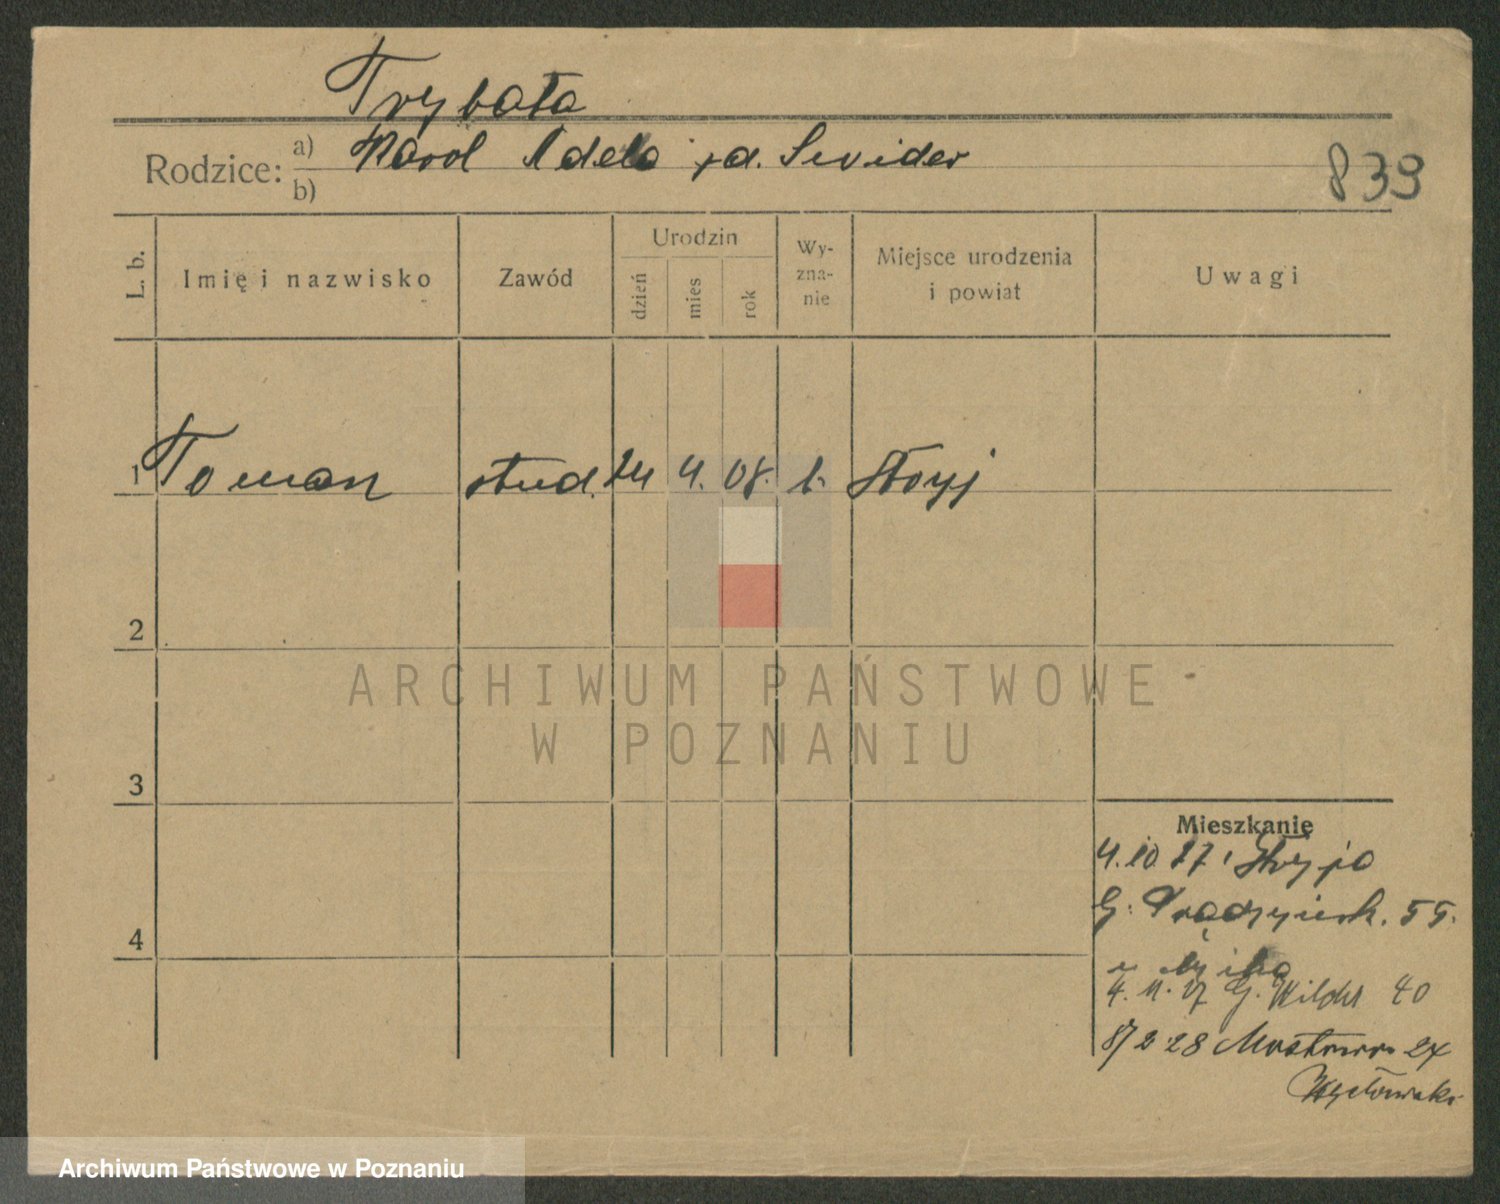 Trybała
Rodzice: a) Karol Adela zd. Swider
b)
839
L. b.
Imię i nazwisko
Zawód
Urodzin
dzień
mies
rok
Wy-
zna-
nie
Miejsce urodzenia
i powiat
Uwagi
1 Roman stud. 24 4. 08. Stryj
2
ARCHIWUM PAŃSTWOWE
W POZNANIU
3
Mieszkanie
4.10 27 Stryja
G. Prądzyńsk. 55.
4
4. 11. 27 G. Wilda 40
8/2 28 Mostowa 24
Archiwum Państwowe w Poznaniu